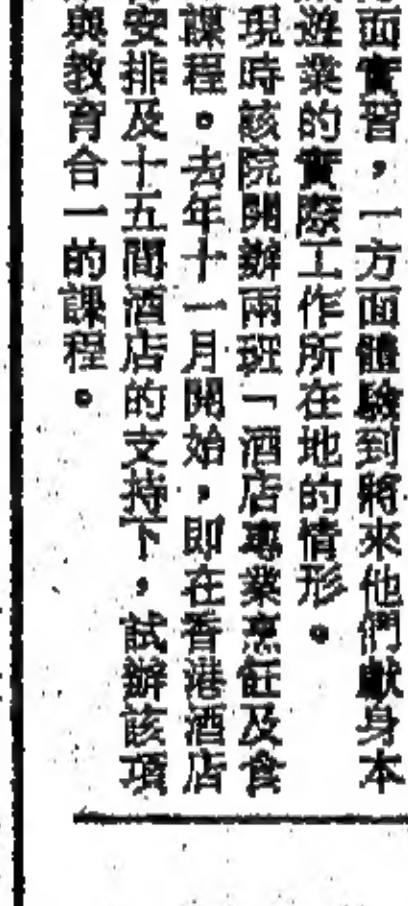 面實習，一方面體驗到將來他們獻身本
遊業的實際工作所在地的情形。
現時該院開辦兩班「酒店專業烹飪及食
課程。去年十一月開始，即在香港酒店
安排及十五間酒店的支持下，試辦該項
與教育合一的課程。